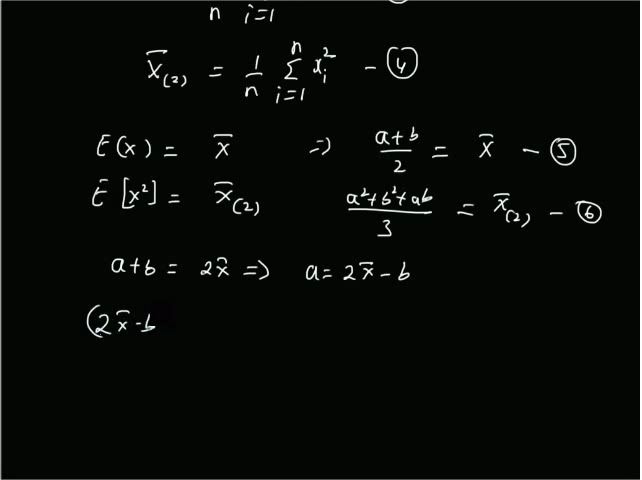 n i=1
x̄₍₂₎ = 1/n Σⁿᵢ₌₁ xᵢ² - ④
E(x) = x̄ => a+b/2 = x̄ - ⑤
E[x²] = x̄₍₂₎ a²+b²+ab/3 = x̄₍₂₎ - ⑥
a+b = 2x̄ => a = 2x̄ - b
(2x̄ - b